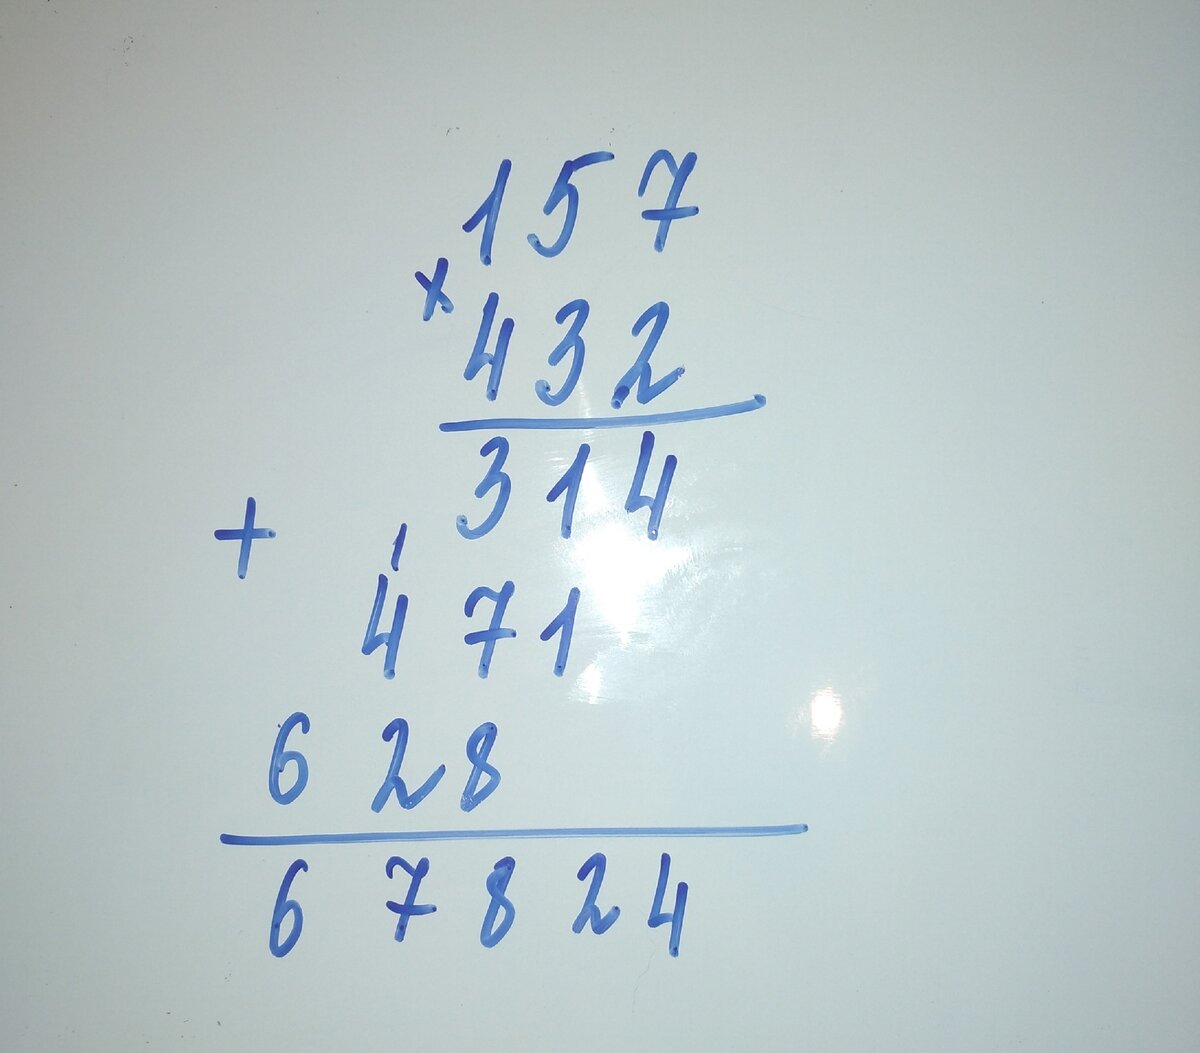 157
×
432
314
+
1
471
628
67824